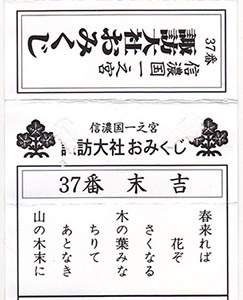 37番
信濃国一之宮
諏訪大社おみくじ
信濃国一之宮
訪大社おみくじ
37番 末吉
春来れば
花ぞ
さくなる
木の葉みな
ちりて
あとなき
山の木末に